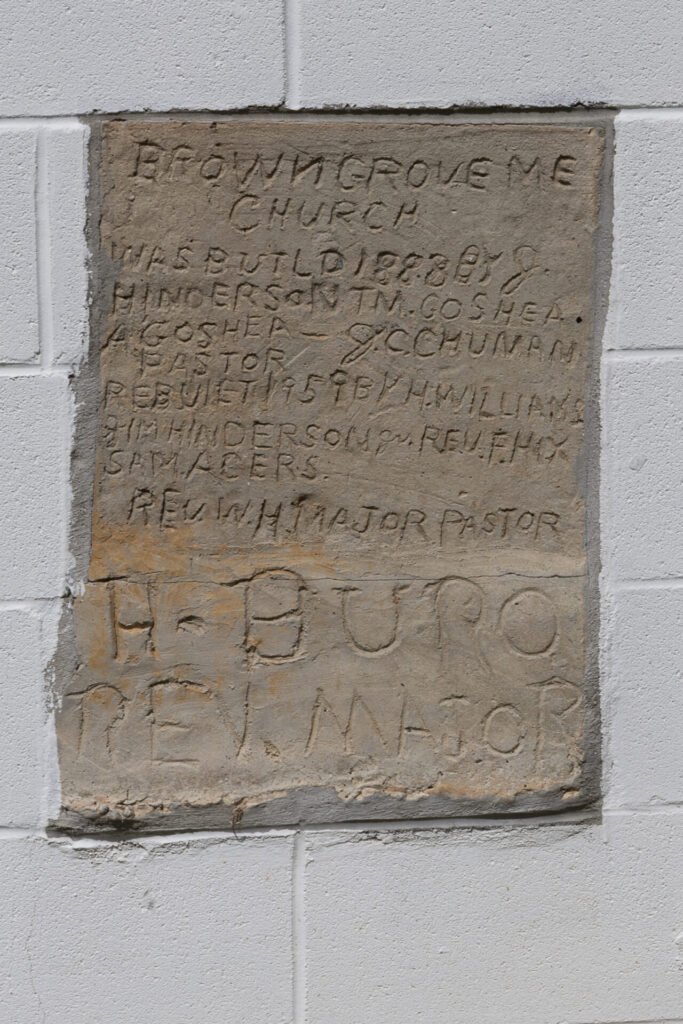 BROWN GROVE ME
CHURCH
WAS BUILD 1888 BY J.
HINDERSON TM. GOSHEA
A GOSHEA - J.C CHUNAN
PASTOR
REBUIET 1959 BY H. WILLIAMS
JIM HINDERSON Jr. REV. F. HIX
SAM. ACERS.
REV. W. H. MAJOR PASTOR
H - BURO
REV. MAJOR